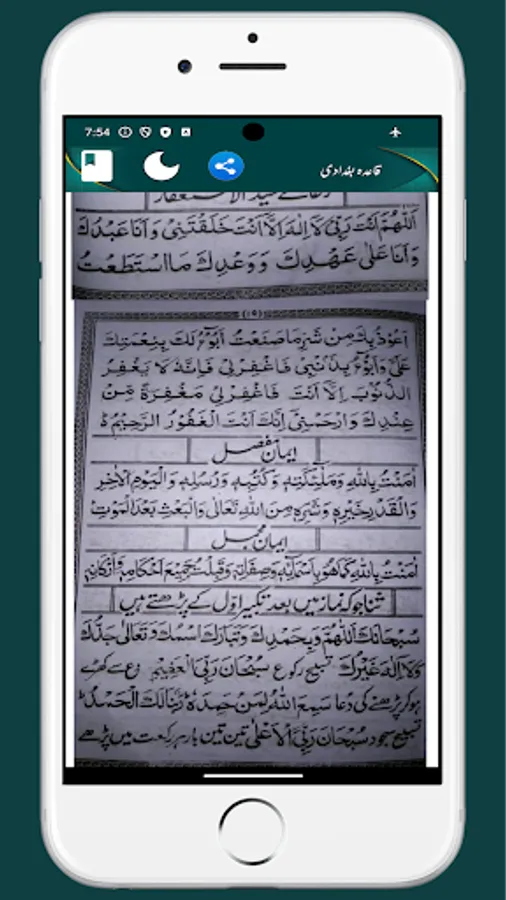 7:54
قاعدہ بغدادی
دعائے سید الاستغفار
اَللّٰهُمَّ اَنْتَ رَبِّیْ لَا اِلٰهَ اِلَّا اَنْتَ خَلَقْتَنِیْ وَ اَنَا عَبْدُكَ
وَ اَنَا عَلٰی عَهْدِكَ وَ وَعْدِكَ مَا اسْتَطَعْتُ
(١٥)
اَعُوْذُ بِكَ مِنْ شَرِّ مَا صَنَعْتُ اَبُوْٓءُ لَكَ بِنِعْمَتِكَ
عَلَیَّ وَ اَبُوْٓءُ بِذَنْۢبِیْ فَاغْفِرْلِیْ فَاِنَّهٗ لَا یَغْفِرُ
الذُّنُوْبَ اِلَّا اَنْتَ فَاغْفِرْلِیْ مَغْفِرَةً مِّنْ
عِنْدِكَ وَ ارْحَمْنِیْ اِنَّكَ اَنْتَ الْغَفُوْرُ الرَّحِیْمُ ۝
ایمان مفصل
اٰمَنْتُ بِاللّٰهِ وَ مَلٰٓئِكَتِهٖ وَ كُتُبِهٖ وَ رُسُلِهٖ وَ الْیَوْمِ الْاٰخِرِ
وَ الْقَدْرِ خَیْرِهٖ وَ شَرِّهٖ مِنَ اللّٰهِ تَعَالٰی وَ الْبَعْثِ بَعْدَ الْمَوْتِ
ایمان مجمل
اٰمَنْتُ بِاللّٰهِ كَمَا هُوَ بِاَسْمَآئِهٖ وَ صِفَاتِهٖ وَ قَبِلْتُ جَمِیْعَ اَحْكَامِهٖ وَ اَرْكَانِهٖ
ثنا جو کہ نماز میں بعد تکبیر اوّل کے پڑھتے ہیں
سُبْحَانَكَ اللّٰهُمَّ وَ بِحَمْدِكَ وَ تَبَارَكَ اسْمُكَ وَ تَعَالٰی جَدُّكَ
وَ لَا اِلٰهَ غَیْرُكَ تسبیح رکوع سُبْحَانَ رَبِّیَ الْعَظِیْمِ سے کھڑے
ہو کر پڑھنے کی دعا سَمِعَ اللّٰهُ لِمَنْ حَمِدَهٗ رَبَّنَا لَكَ الْحَمْدُ
تسبیح سجود سُبْحَانَ رَبِّیَ الْاَعْلٰی تین تین بار ہر رکعت میں پڑھے